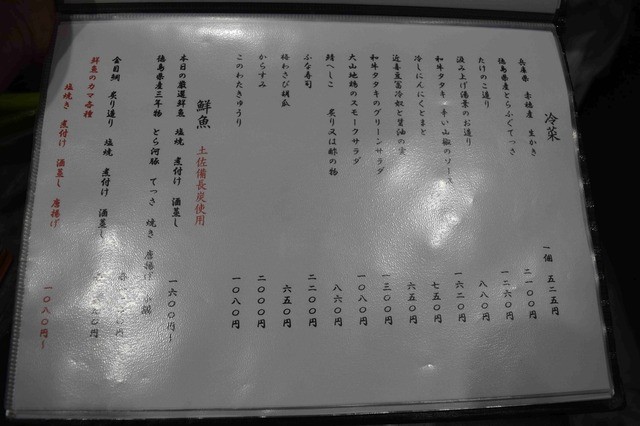 冷菜
兵庫県 赤穂産 生かき 一個 五二五円
徳島県産とらふぐてっさ 二一〇〇円
たけのこ造り 一二六〇円
汲み上げ湯葉のお造り 八八〇円
和牛タタキ 辛い山椒のソース 一六二〇円
冷しにんにくとまと 七五〇円
近喜豆富冷奴と醤油の実 六五〇円
和牛タタキのグリーンサラダ 一三〇〇円
大山地鶏のスモークサラダ 一〇八〇円
鯖へしこ 炙り又は酢の物 八六〇円
ふな寿司 二二〇〇円
わさび胡瓜 六五〇円
からすみ 二〇〇〇円
このわたきゅうり 一〇八〇円
鮮魚 土佐備長炭使用
本日の厳選鮮魚 塩焼 煮付け 酒蒸し 一六〇〇円〜
徳島県産三年物 とら河豚 てっさ 焼き 唐揚げ 小鍋
金目鯛 炙り造り 塩焼 煮付け 酒蒸し
鮮魚のカマ各種
塩焼き 煮付け 酒蒸し 唐揚げ 一〇八〇円〜